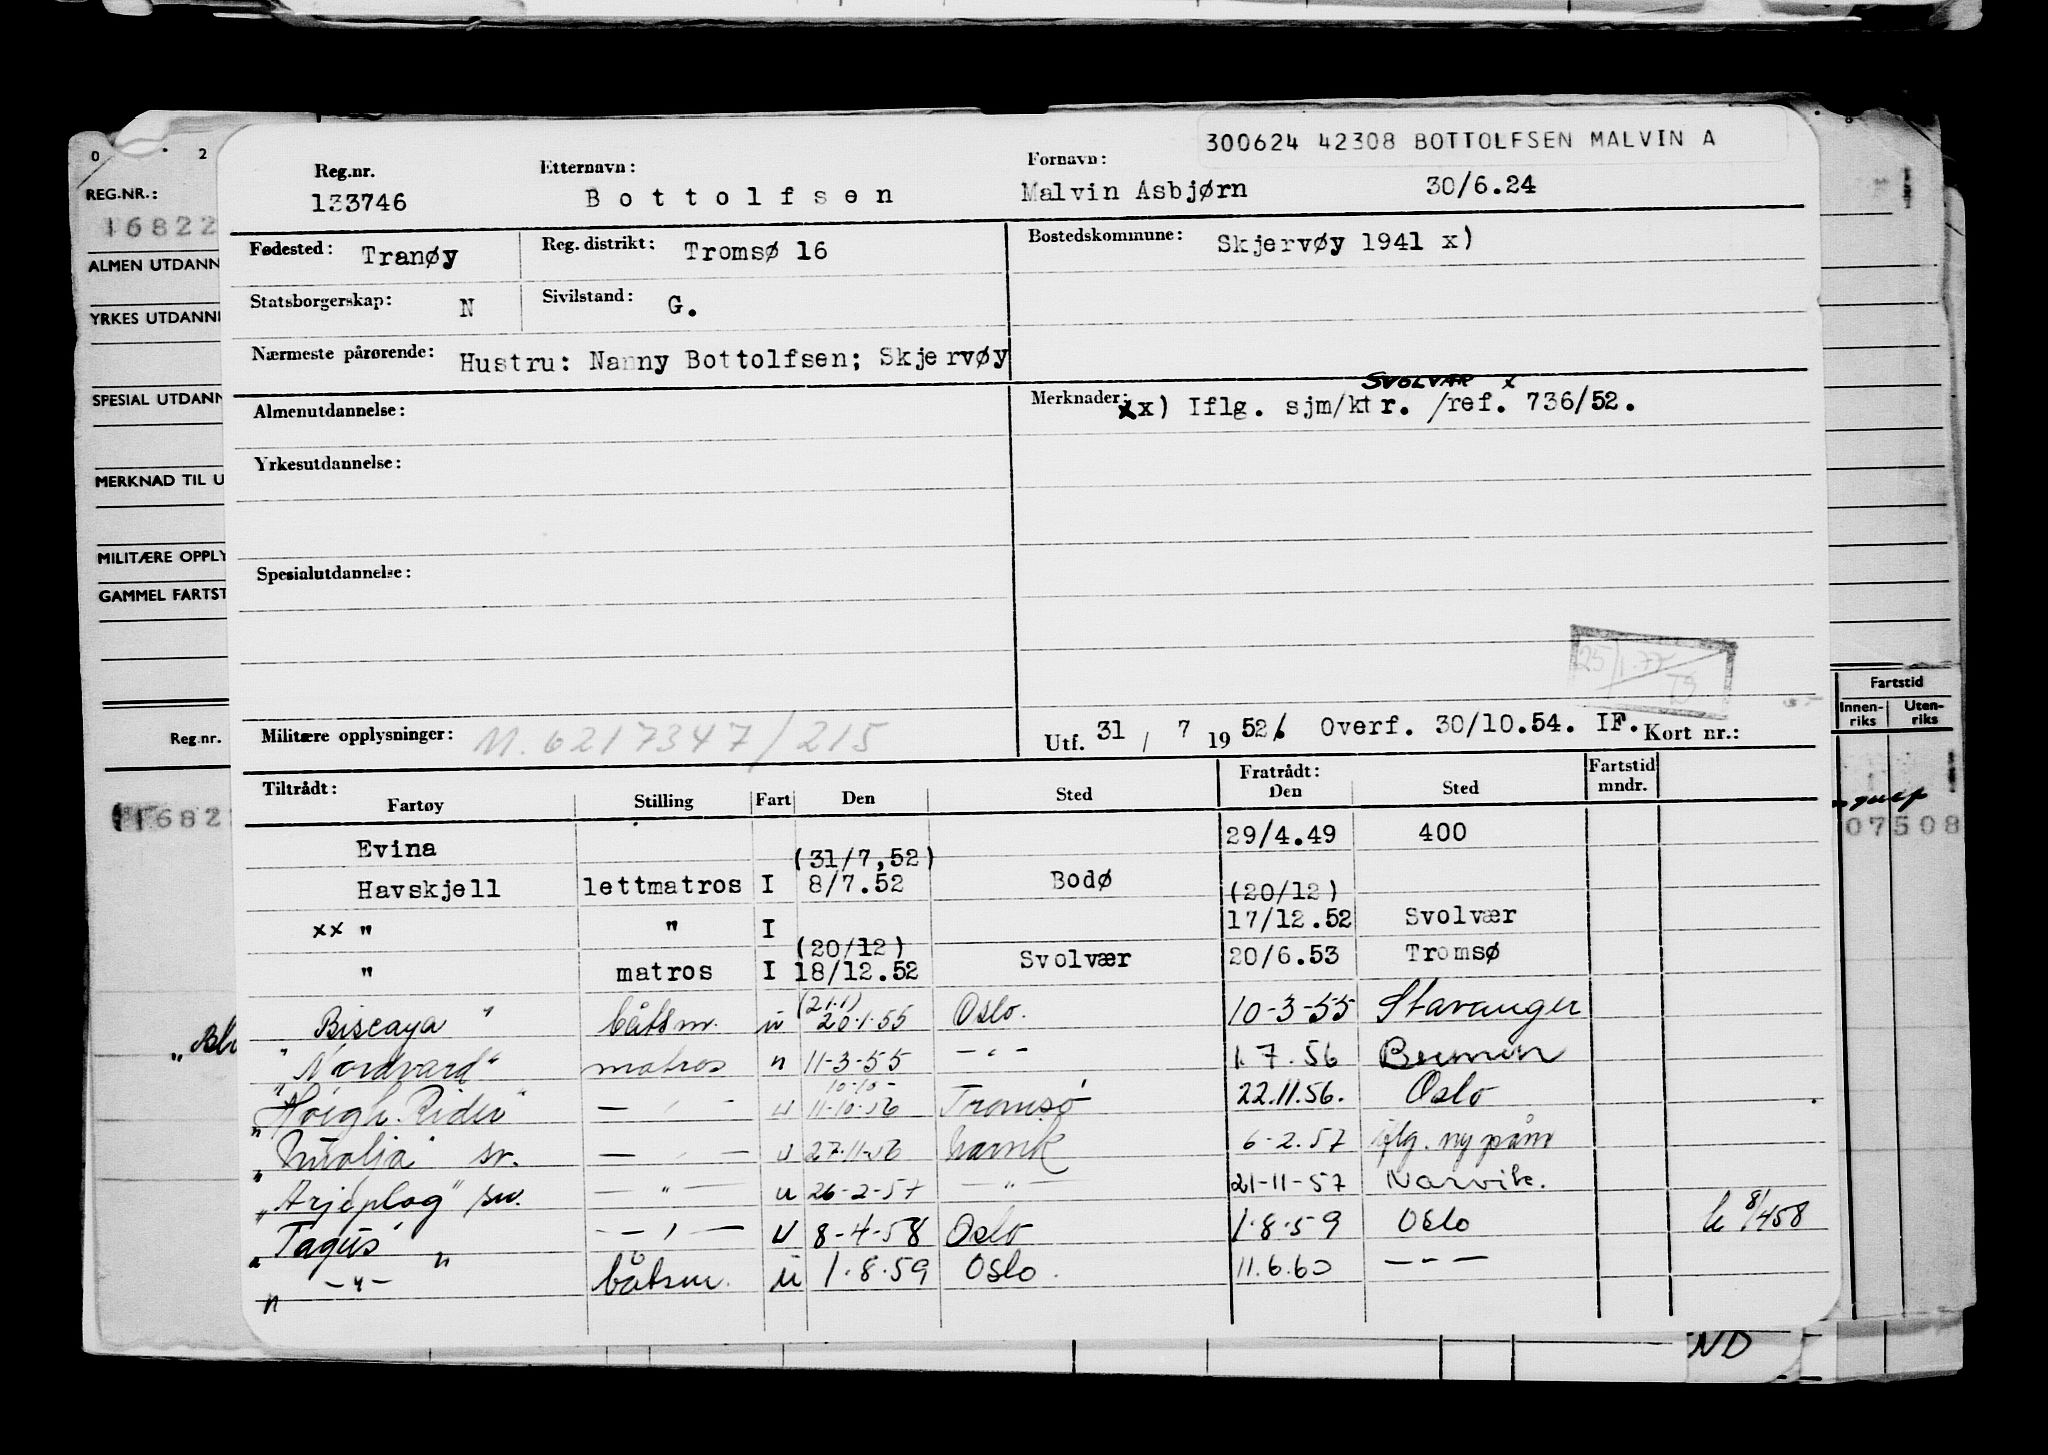 300624 42308 BOTTOLFSEN MALVIN A
Reg.nr. Etternavn: Fornavn:
133746 Bottolfsen Malvin Asbjørn 30/6.24
Fødested: Tranøy Reg. distrikt: Tromsø 16 Bostedskommune: Skjervøy 1941 x)
Statsborgerskap: N Sivilstand: G.
Nærmeste pårørende: Hustru: Nanny Bottolfsen; Skjervøy
SVOLVÆR x
Almenutdannelse: Merknader: xx) Iflg. sjm/ktr. /ref. 736/52.
Yrkesutdannelse:
Spesialutdannelse:
25/1-77
TS
Militære opplysninger: M.6217347/215 Utf. 31 / 7 1952. Overf. 30/10.54. IF. Kort nr.:
Tiltrådt: Fratrådt: Fartstid
Fartøy Stilling Fart Den Sted Den Sted mndr.
Evina 29/4.49 400
(31/7,52)
Havskjell lettmatros I 8/7.52 Bodø
(20/12)
xx " " I 17/12.52 Svolvær
(20/12)
" matros I 18/12.52 Svolvær 20/6.53 Tromsø
(21.1)
Biscaya " båtsm. u 20.1.55 Oslo. 10-3-55 Stavanger
"Nordvard" matros " 11-3-55 - " - 1.7.56 Bremen
10-10-
"Høegh Rider" - " - u 11.10.56 Tromsø 22.11.56. Oslo
sv. - " - u 27.11.56 Narvik 6-2.57 iflg. ny påm
"Arjeplog" sv. - " - u 26-2-57 - " - 21-11-57 Narvik.
"Tagus" " - " - u 8-4-58 Oslo 1.8.59 Oslo 8/458
" - " - båtsm. u 1.8.59 Oslo. 11.6.60 - - -
0 2
REG.NR.:
16822
ALMEN UTDANN
YRKES UTDANN
SPESIAL UTDANN
MERKNAD TIL U
MILITÆRE OPPLY
GAMMEL FARTST
Reg.nr.
1682
"Bl
Fartstid
Innen-riks Uten-riks
07508
ND